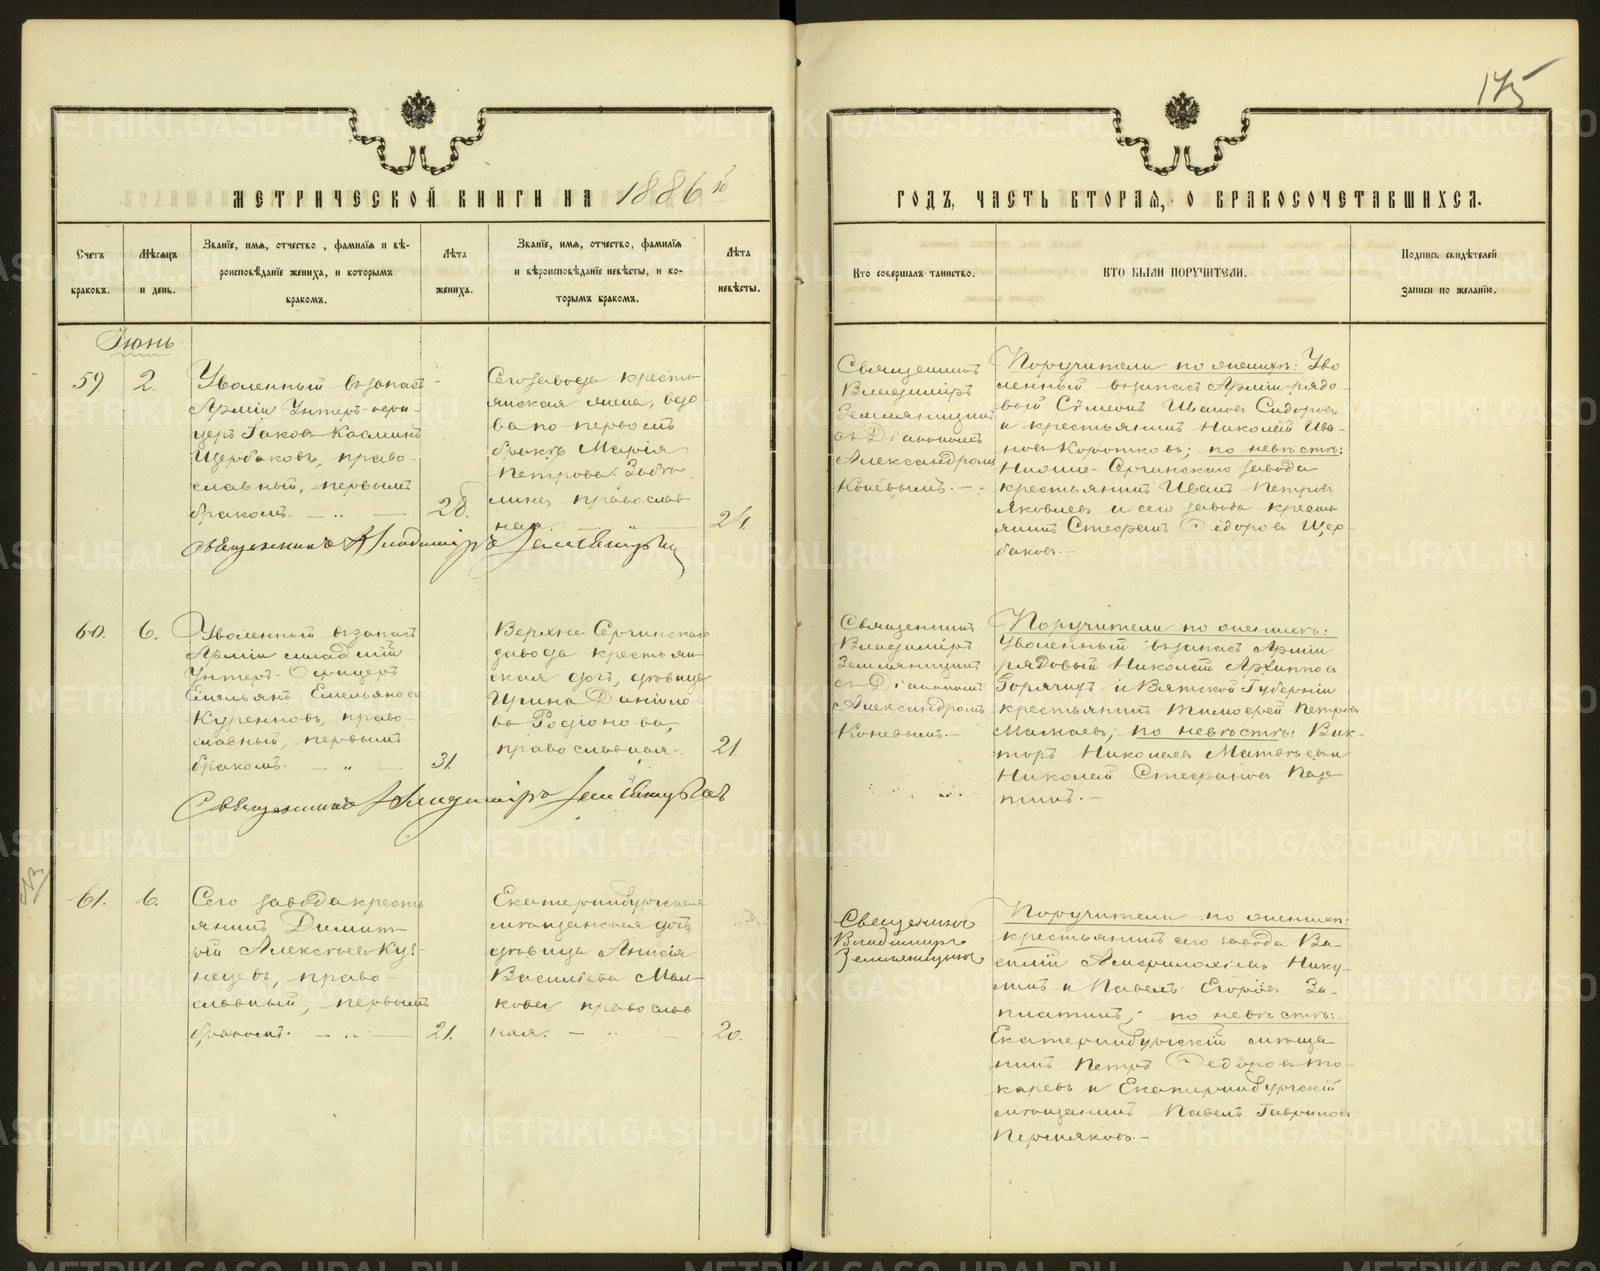 175
МЕТРИЧЕСКОЙ КНИГИ НА 1886й
ГОДЪ, ЧАСТЬ ВТОРАЯ, О БРАКОСОЧЕТАВШИХСЯ.
Счетъ
браковъ.
Мѣсяцъ
и день.
Званіе, имя, отчество, фамилія и вѣ-
роисповѣданіе жениха, и которымъ
бракомъ.
Лѣта
жениха.
Званіе, имя, отчество, фамилія
и вѣроисповѣданіе невѣсты, и ко-
торымъ бракомъ.
Лѣта
невѣсты.
Кто совершалъ таинство.
КТО БЫЛИ ПОРУЧИТЕЛИ.
Подпись свидѣтелей
записи по желанію.
Іюнь
59
2.
Уволенный въ запасъ
Арміи Унтеръ-офи-
церъ Іаковъ Косминъ
Щербаковъ, право-
славный, первымъ
бракомъ. — „ —
28.
Сего завода кресть-
янская жена, вдо-
ва по первомъ
бракѣ Марія
Петрова
православ
ная. — „ —
24.
Священникъ
Владиміръ
Земляницынъ
съ Діакономъ
Александромъ
Коневымъ. —
Поручители по женихѣ: Уво
ленный въ запасъ Арміи рядо-
вый Сѵмеонъ Ивановъ Сидоровъ
и крестьянинъ Николай Ива-
новъ Коротковъ; по невѣстѣ:
Нижне-Сергинскаго завода
крестьянинъ Иванъ Петровъ
Яковлевъ и сего завода кресть-
янинъ Стефанъ Ѳедоровъ Щер-
баковъ. —
Священникъ Владиміръ Земляницынъ
60.
6.
Уволенный въ запасъ
Арміи младшій
Унтеръ-Офицеръ
Емельянъ Емельяновъ
Куренновъ, право-
славный, первымъ
бракомъ. — „ —
31.
Верхне-Сергинскаго
завода крестьян-
ская дочь, дѣвица
Ирина Даніило-
ва Родіонова,
православная.
21.
Священникъ
Владиміръ
Земляницынъ
съ Діакономъ
Александромъ
Коневымъ. —
Поручители по женихѣ:
Уволенный въ запасъ Арміи
рядовый Николай Архиповъ
Горячихъ и Вятской Губерніи
крестьянинъ Тимофей Петровъ
по невѣстѣ: Вик-
торъ Николаевъ Матвѣевъ и
Николай Стефановъ
Священникъ Владиміръ Земляницынъ
61.
6.
Сего завода кресть
янинъ Димит-
рій Алексѣевъ Куз-
нецовъ, право-
славный, первымъ
бракомъ. — „ —
21.
Екатеринбургская
мѣщанская дочь
дѣвица Анисія
Василіева Мал-
кова, православ
ная. — „ —
20.
Священникъ
Владиміръ
Земляницынъ
Поручители по женихѣ:
крестьянинъ сего завода Ва-
силій Амфилохіевъ Нику-
линъ и Павелъ Егоровъ За-
платинъ; по невѣстѣ:
Екатеринбургскій мѣща-
нинъ Петръ Ѳедоровъ То-
каревъ и Екатеринбургскій
мѣщанинъ Павелъ Гавриловъ
Пермяковъ. —
METRIKI.GASO-URAL.RU